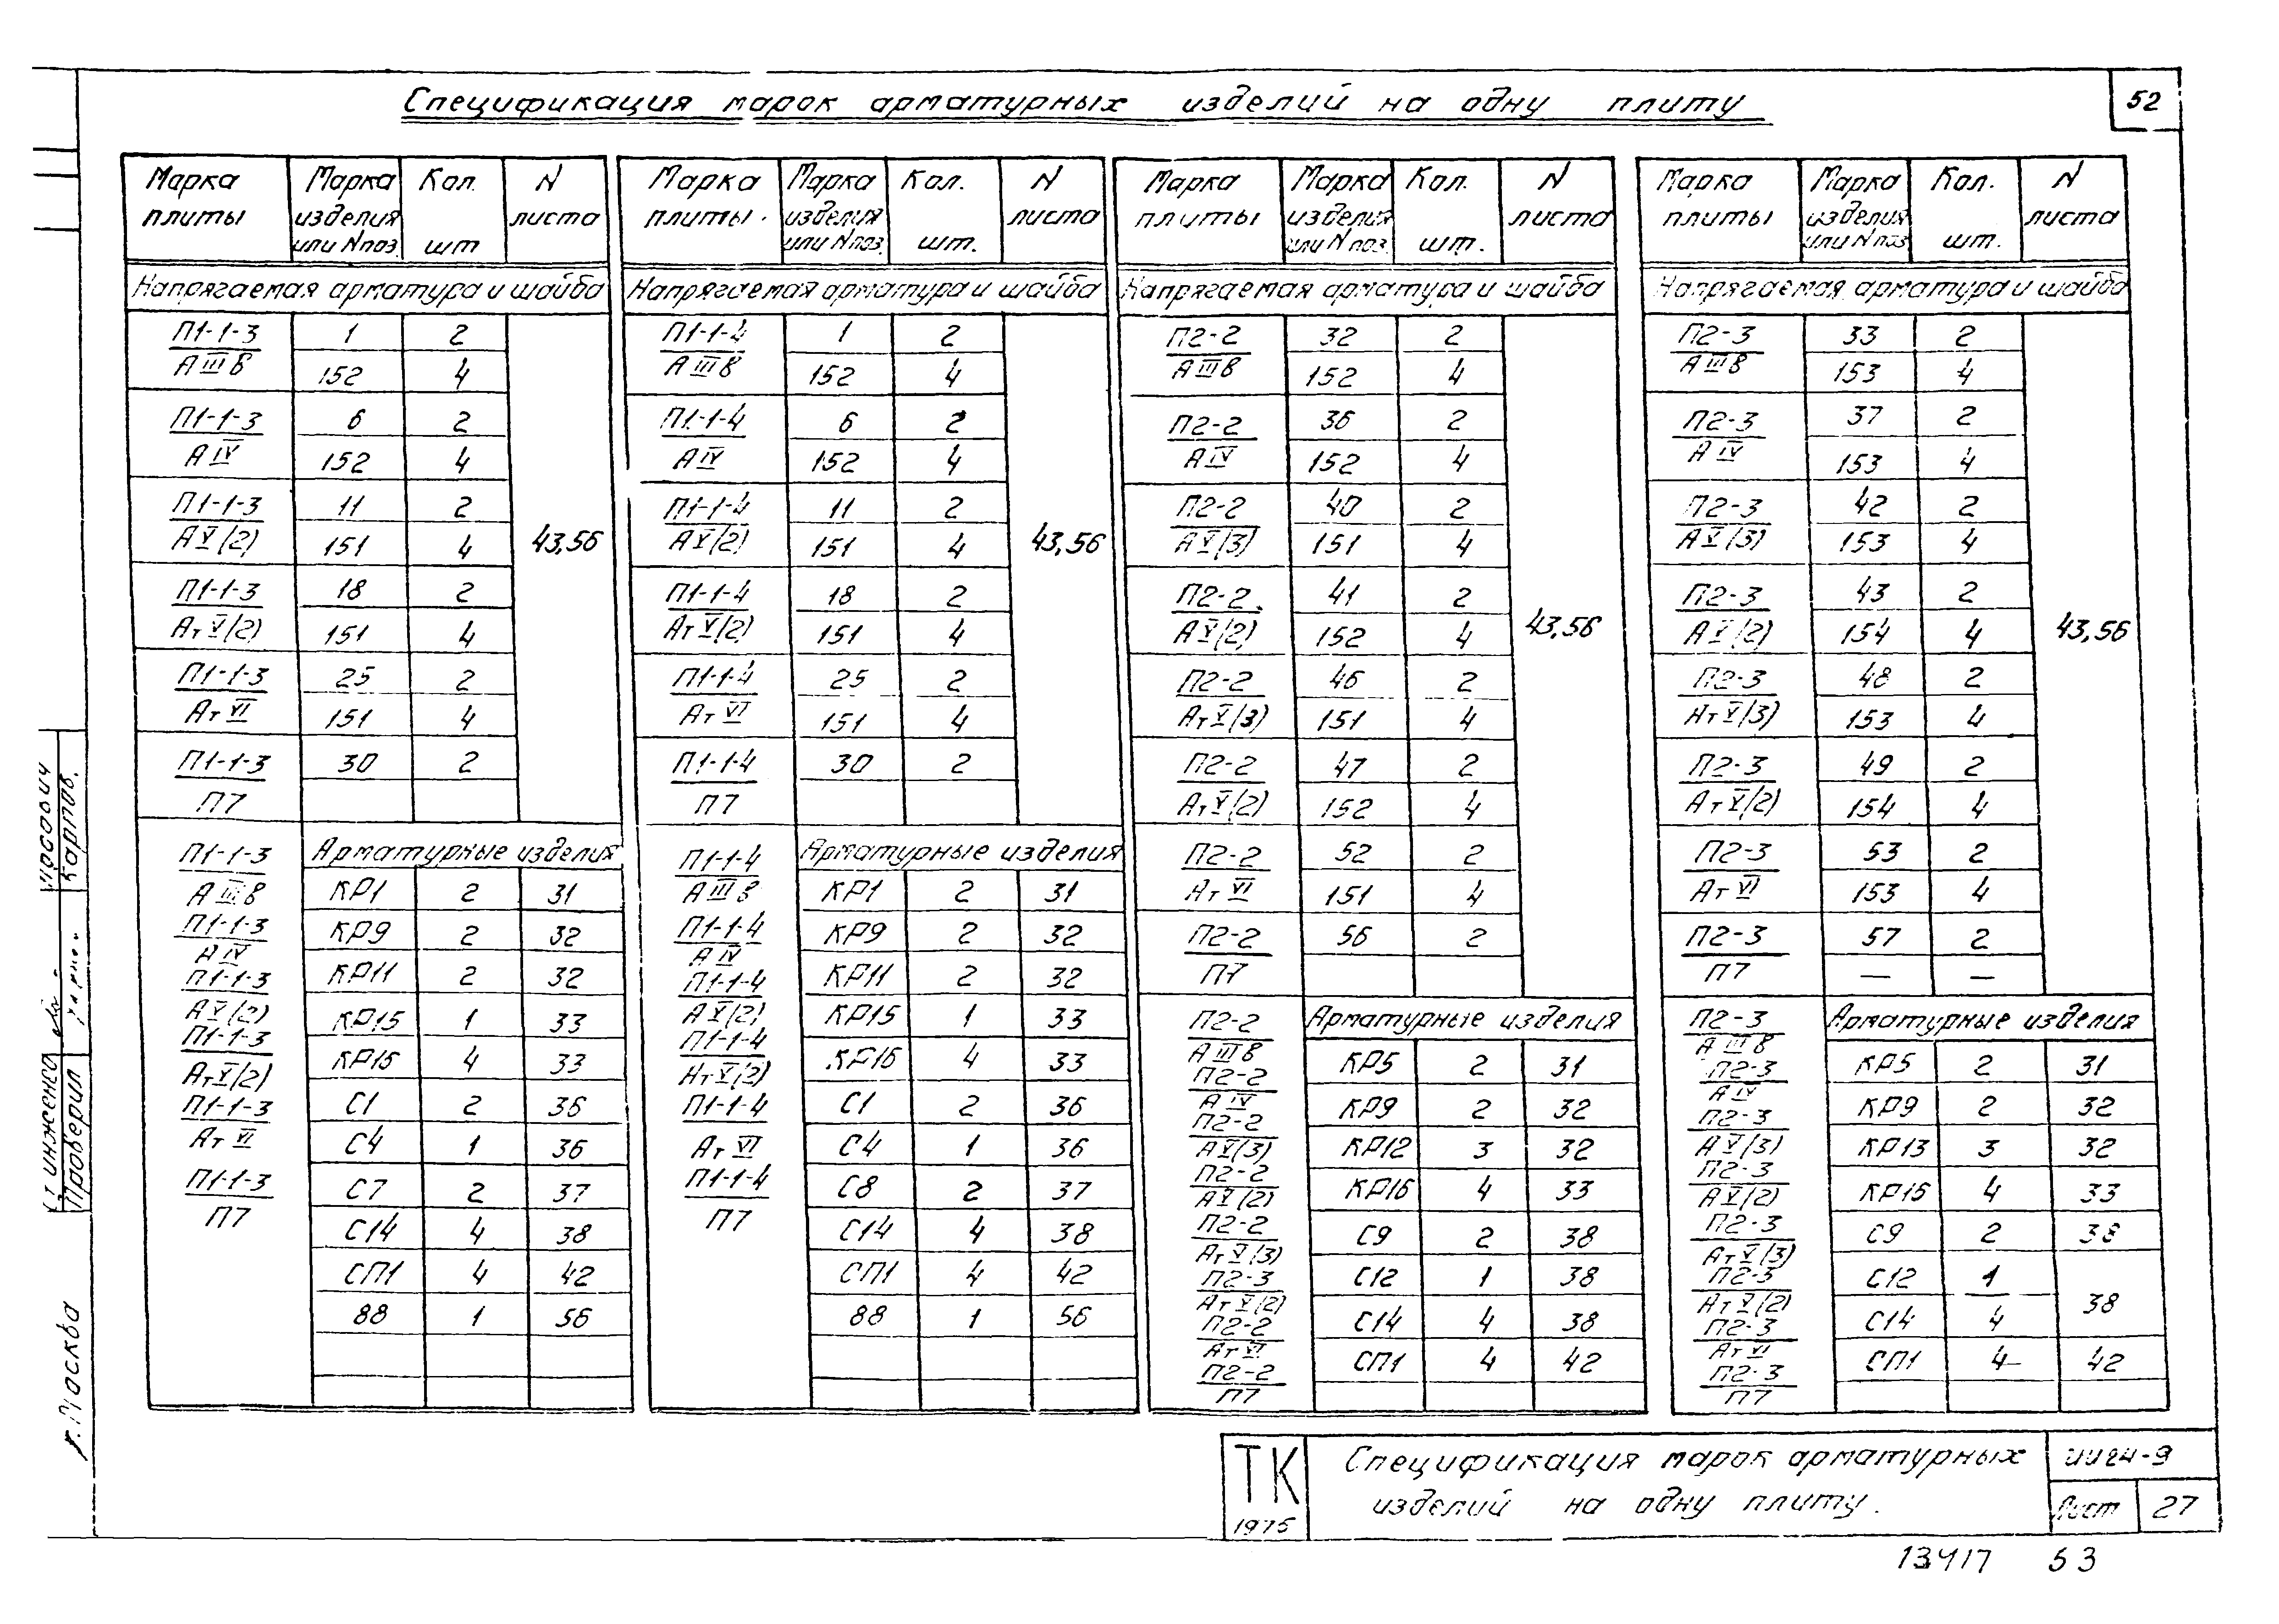 Спецификация марок арматурных изделий на одну плиту
52
Марка плиты | Марка изделия или N поз. | Кол. шт | N листа
Напрягаемая арматура и шайба
П1-1-3 | 1 | 2 | 43,56
АIIIв | 152 | 4
П1-1-3 | 6 | 2
АIV | 152 | 4
П1-1-3 | 11 | 2
АV(2) | 151 | 4
П1-1-3 | 18 | 2
АтV(2) | 151 | 4
П1-1-3 | 25 | 2
АтVI | 151 | 4
П1-1-3 | 30 | 2
П7
Арматурные изделия
П1-1-3
АIIIв
П1-1-3
АIV
П1-1-3
АV(2)
П1-1-3
АтV(2)
П1-1-3
АтVI
П1-1-3
П7
КР1 | 2 | 31
КР9 | 2 | 32
КР11 | 2 | 32
КР15 | 1 | 33
КР16 | 4 | 33
С1 | 2 | 36
С4 | 1 | 36
С7 | 2 | 37
С14 | 4 | 38
СП1 | 4 | 42
88 | 1 | 56
Марка плиты. | Марка изделия или N поз. | Кол. шт. | N листа
Напрягаемая арматура и шайба
П1-1-4 | 1 | 2 | 43,56
АIIIв | 152 | 4
П1-1-4 | 6 | 2
АIV | 152 | 4
П1-1-4 | 11 | 2
АV(2) | 151 | 4
П1-1-4 | 18 | 2
АтV(2) | 151 | 4
П1-1-4 | 25 | 2
АтVI | 151 | 4
П1-1-4 | 30 | 2
П7
Арматурные изделия
П1-1-4
АIIIв
П1-1-4
АIV
П1-1-4
АV(2)
П1-1-4
АтV(2)
П1-1-4
АтVI
П1-1-4
П7
КР1 | 2 | 31
КР9 | 2 | 32
КР11 | 2 | 32
КР15 | 1 | 33
КР16 | 4 | 33
С1 | 2 | 36
С4 | 1 | 36
С8 | 2 | 37
С14 | 4 | 38
СП1 | 4 | 42
88 | 1 | 56
Марка плиты | Марка изделия или N поз. | Кол. шт. | N листа
Напрягаемая арматура и шайба
П2-2 | 32 | 2 | 43,56
АIIIв | 152 | 4
П2-2 | 36 | 2
АIV | 152 | 4
П2-2 | 40 | 2
АV(3) | 151 | 4
П2-2 | 41 | 2
АV(2) | 152 | 4
П2-2 | 46 | 2
АтV(3) | 151 | 4
П2-2 | 47 | 2
АтV(2) | 152 | 4
П2-2 | 52 | 2
АтVI | 151 | 4
П2-2 | 56 | 2
П7
Арматурные изделия
П2-2
АIIIв
П2-2
АIV
П2-2
АV(3)
П2-2
АV(2)
П2-2
АтV(3)
П2-3
АтV(2)
П2-2
АтVI
П2-2
П7
КР5 | 2 | 31
КР9 | 2 | 32
КР12 | 3 | 32
КР16 | 4 | 33
С9 | 2 | 38
С12 | 1 | 38
С14 | 4 | 38
СП1 | 4 | 42
Марка плиты | Марка изделия или N поз | Кол. шт. | N листа
Напрягаемая арматура и шайба
П2-3 | 33 | 2 | 43,56
АIIIв | 153 | 4
П2-3 | 37 | 2
АIV | 153 | 4
П2-3 | 42 | 2
АV(3) | 153 | 4
П2-3 | 43 | 2
АV(2) | 154 | 4
П2-3 | 48 | 2
АтV(3) | 153 | 4
П2-3 | 49 | 2
АтV(2) | 154 | 4
П2-3 | 53 | 2
АтVI | 153 | 4
П2-3 | 57 | 2
П7 | — | —
Арматурные изделия
П2-3
АIIIв
П2-3
АIV
П2-3
АV(3)
П2-3
АV(2)
П2-3
АтV(3)
П2-3
АтV(2)
П2-3
АтVI
П2-3
П7
КР5 | 2 | 31
КР9 | 2 | 32
КР13 | 3 | 32
КР16 | 4 | 33
С9 | 2 | 38
С12 | 1 | 38
С14 | 4
СП1 | 4 | 42
Проверил
Карпов.
г. Москва
ТК
1975
Спецификация марок арматурных
изделий на одну плиту.
ИИ24-9
Лист 27
13417 53